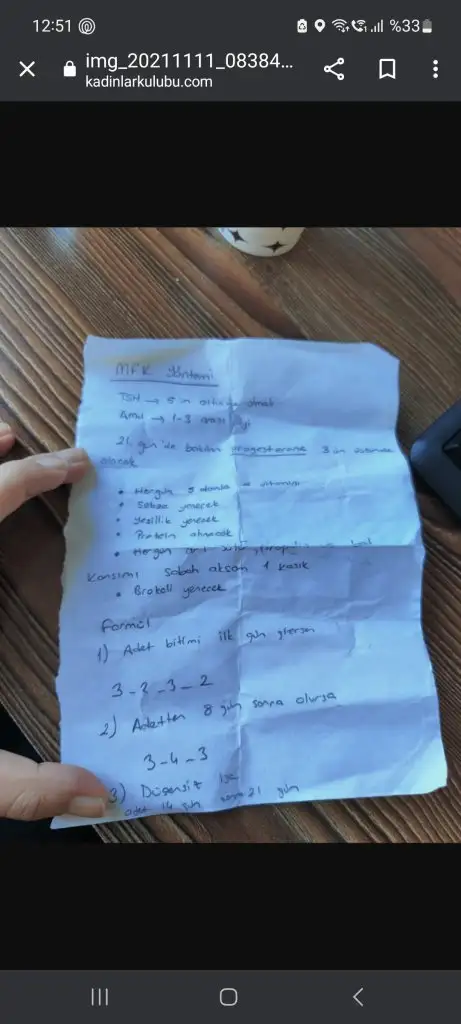 12:51
%33
img_20211111_08384...
kadinlarkulubu.com
MFK Yöntemi
TSH → 5 in altında olmalı
AMH → 1-3 arası iyi
21. gün'de bakılan progesterone 3 ün üstünde
olacak
• Hergün 5 damla D vitamini
• Sebze yenecek
• Yeşillik yenecek
• Protein alınacak
• Hergün
Karışımı sabah akşam 1 kaşık
• Brokoli yenecek
Formül
1) Adet bitimi ilk gün
3-2-3-2
2) Adetten 8 gün sonra olursa
3-4-3
3) Düzensiz ise
adet 14 gün 21 gün